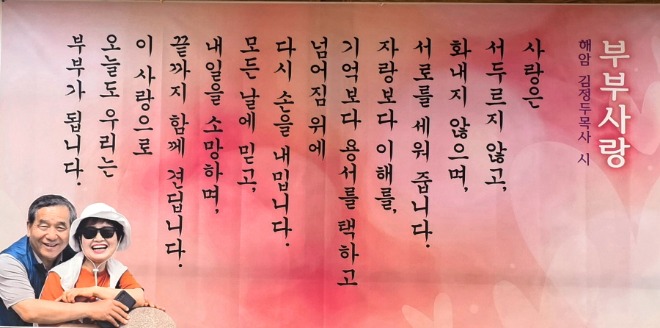 부부사랑
해암 김정두목사 시
사랑은
서두르지 않고,
화내지 않으며,
서로를 세워 줍니다.
자랑보다 이해를,
기억보다 용서를 택하고
넘어짐 위에
다시 손을 내밉니다.
모든 날에 믿고,
내일을 소망하며,
끝까지 함께 견딥니다.
이 사랑으로
오늘도 우리는
부부가 됩니다.